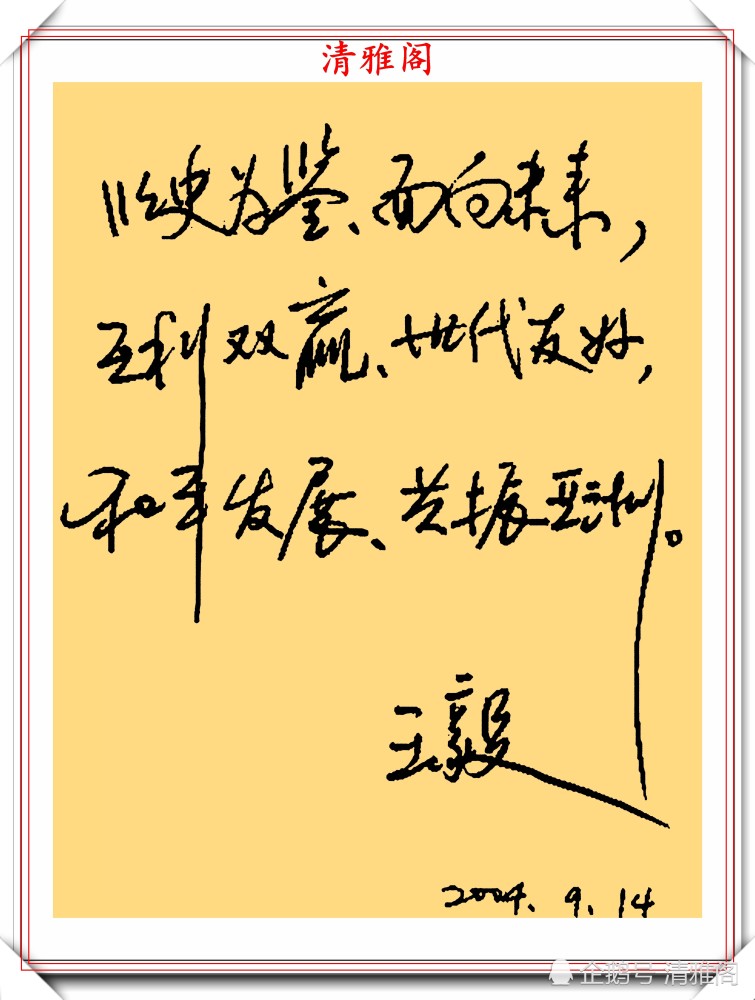 清雅阁
以史为鉴、面向未来，
互利双赢、世代友好，
和平发展、共振亚洲。
王毅
2004.9.14
企鹅号 清雅阁